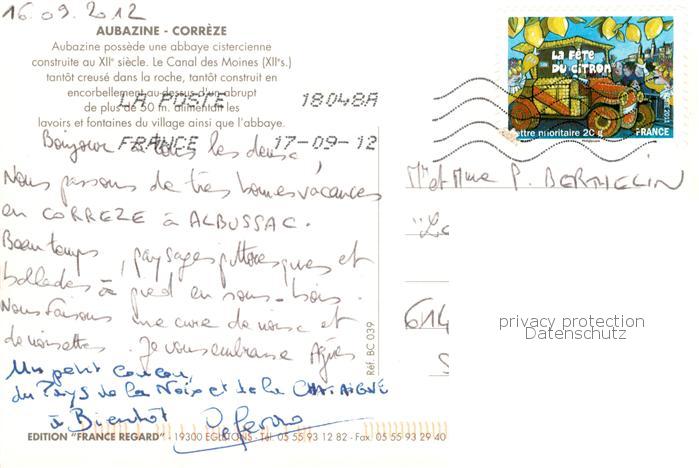 16.09.2012
AUBAZINE - CORRÈZE
Aubazine possède une abbaye cistercienne
construite au XIIe siècle. Le Canal des Moines (XIIe s.)
tantôt creusé dans la roche, tantôt construit en
encorbellement au-dessus d'un abrupt
de plus de 50 m. alimentait les
lavoirs et fontaines du village ainsi que l'abbaye.
LA POSTE 18048A
FRANCE 17-09-12
LA FÊTE
DU CITRON
lettre prioritaire 20 g FRANCE
Bonjour à tous les deux,
Nous passons de très bonnes vacances
en CORREZE à ALBUSSAC.
Beau temps, paysages pittoresques et
ballades à pied en sous-bois.
Nous faisons une cure de noix et
de noisettes. Je vous embrasse Agnès
Un petit coucou,
du Pays de la Noix et de la CHATAIGNE
à Bientôt
Mr et Mme P. BERTHELIN
"Le
614
S
privacy protection
Datenschutz
Réf. BC 039
EDITION "FRANCE REGARD" - 19300 EGLETONS - Tél. 05 55 93 12 82 - Fax 05 55 93 29 40